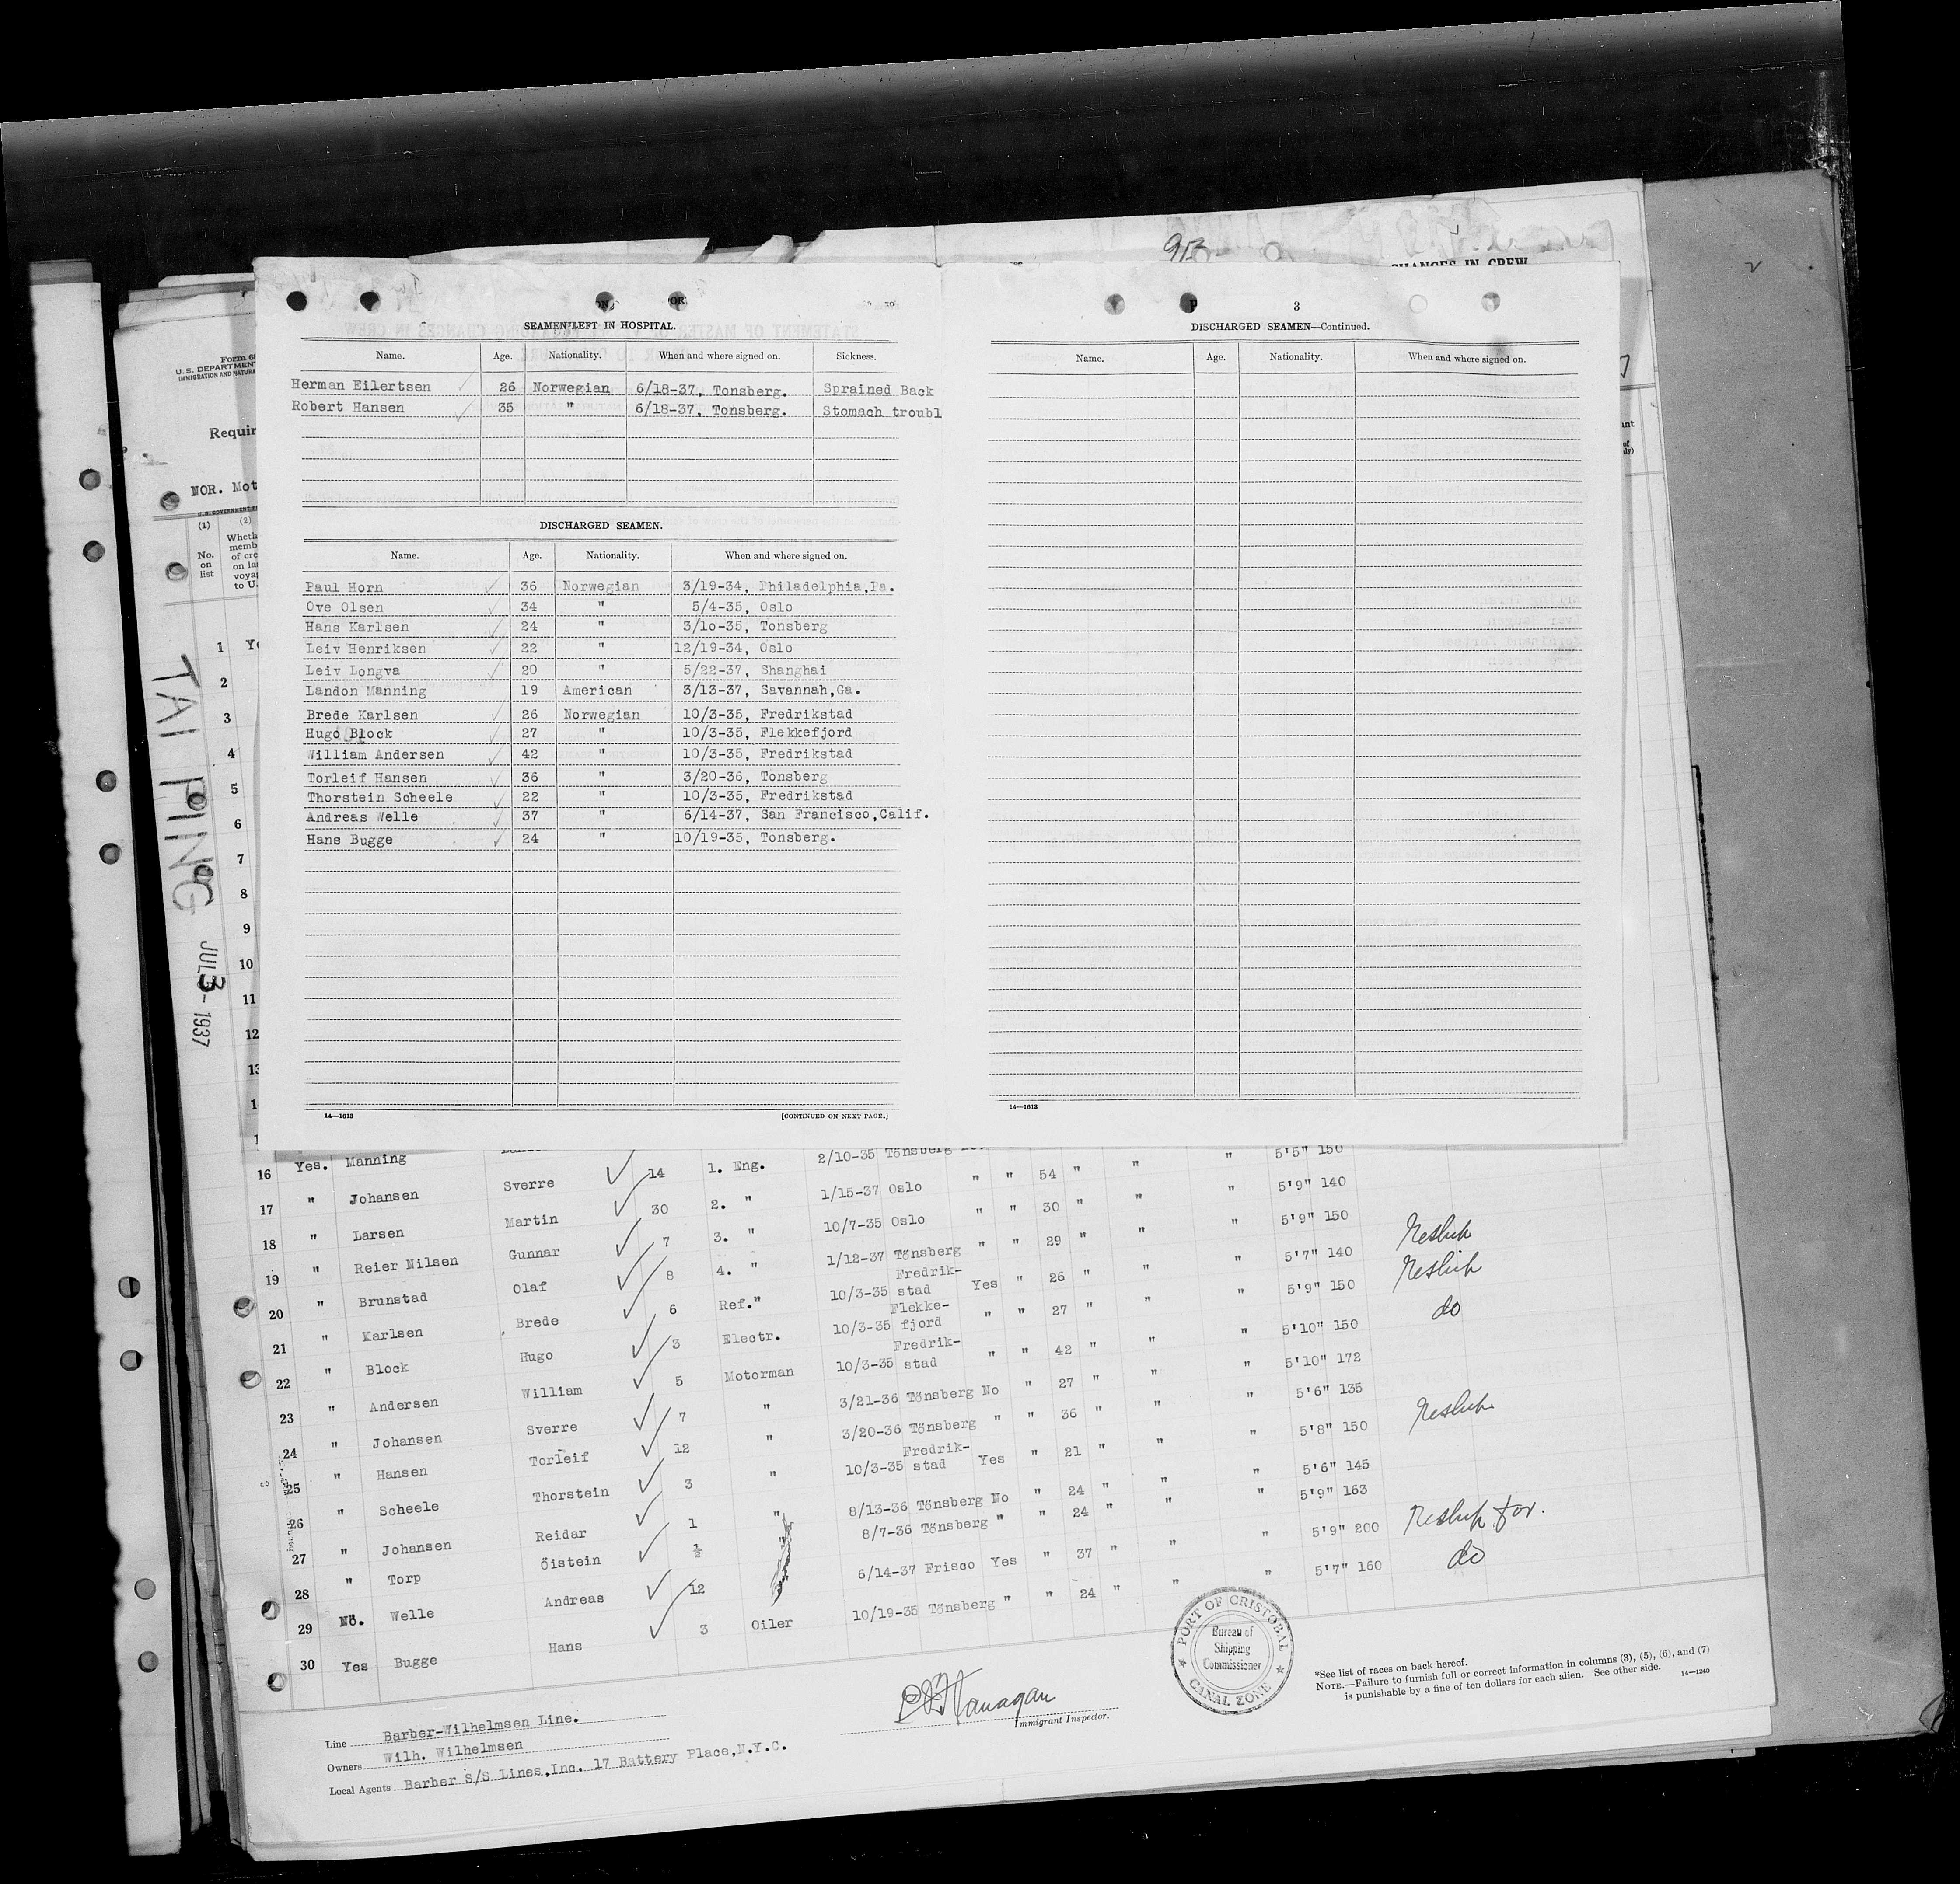 953
CHANGES IN CREW
SEAMEN LEFT IN HOSPITAL.
Name. Age. Nationality. When and where signed on. Sickness.
Herman Eilertsen 26 Norwegian 6/18-37, Tonsberg. Sprained Back
Robert Hansen 35 " 6/18-37, Tonsberg. Stomach troubl
DISCHARGED SEAMEN.
Name. Age. Nationality. When and where signed on.
Paul Horn 36 Norwegian 3/19-34, Philadelphia,Pa.
Ove Olsen 34 " 5/4-35, Oslo
Hans Karlsen 24 " 3/10-35, Tonsberg
Leiv Henriksen 22 " 12/19-34, Oslo
Leiv Longva 20 " 5/22-37, Shanghai
Landon Manning 19 American 3/13-37, Savannah,Ga.
Brede Karlsen 26 Norwegian 10/3-35, Fredrikstad
Hugo Block 27 " 10/3-35, Flekkefjord
William Andersen 42 " 10/3-35, Fredrikstad
Torleif Hansen 36 " 3/20-36, Tonsberg
Thorstein Scheele 22 " 10/3-35, Fredrikstad
Andreas Welle 37 " 6/14-37, San Francisco,Calif.
Hans Bugge 24 " 10/19-35, Tonsberg.
14—1613 [CONTINUED ON NEXT PAGE.]
3
DISCHARGED SEAMEN—Continued.
Name. Age. Nationality. When and where signed on.
14—1613
Form 68
U.S. DEPARTMENT
IMMIGRATION AND NATURA
Requir
NOR. Mot
(1) (2)
No. on list
Wheth
memb
of cre
on la
voya
to U.
TAI PING
JUL 3 - 1937
1 Ye
2
3
4
5
6
7
8
9
10
11
12
13
16 Yes. Manning
17 " Johansen Sverre 14 1. Eng. 2/10-35 Tönsberg " " 54 " " " 5'5" 150
18 " Larsen Martin 30 2. " 1/15-37 Oslo " " 30 " " " 5'9" 140
19 " Reier Nilsen Gunnar 7 3. " 10/7-35 Oslo " " 29 " " " 5'9" 150
20 " Brunstad Olaf 8 4. " 1/12-37 Tönsberg
21 " Karlsen Brede 6 Ref." 10/3-35 Fredrik-stad Yes " 26 " " " 5'7" 140
22 " Block Hugo 3 Electr. 10/3-35 Flekke-fjord " " 27 " " " 5'9" 150
23 " Andersen William 5 Motorman 10/3-35 Fredrik-stad " " 42 " " " 5'10" 150
24 " Johansen Sverre 7 " 3/21-36 Tönsberg No " 27 " " " 5'10" 172
25 " Hansen Torleif 12 " 3/20-36 Tönsberg " " 36 " " " 5'6" 135
26 " Scheele Thorstein 3 " 10/3-35 Fredrik-stad Yes " 21 " " " 5'8" 150
27 " Johansen Reidar 1 " 8/13-36 Tönsberg No " 24 " " " 5'6" 145
28 " Torp Öistein ½ 8/7-36 Tönsberg " " 24 " " " 5'9" 163
29 No. Welle Andreas 12 6/14-37 Frisco Yes " 37 " " " 5'9" 200
30 Yes Bugge Hans 3 Oiler 10/19-35 Tönsberg " " 24 " " " 5'7" 160
do
do
PORT OF CRISTOBAL
Bureau of
Shipping
Commissioner
CANAL ZONE
Immigrant Inspector.
*See list of races on back hereof.
NOTE.—Failure to furnish full or correct information in columns (3), (5), (6), and (7)
is punishable by a fine of ten dollars for each alien. See other side. 14—1240
Line Barber-Wilhelmsen Line.
Owners Wilh. Wilhelmsen
Local Agents Barber S/S Lines,Inc. 17 Battery Place,N.Y.C.